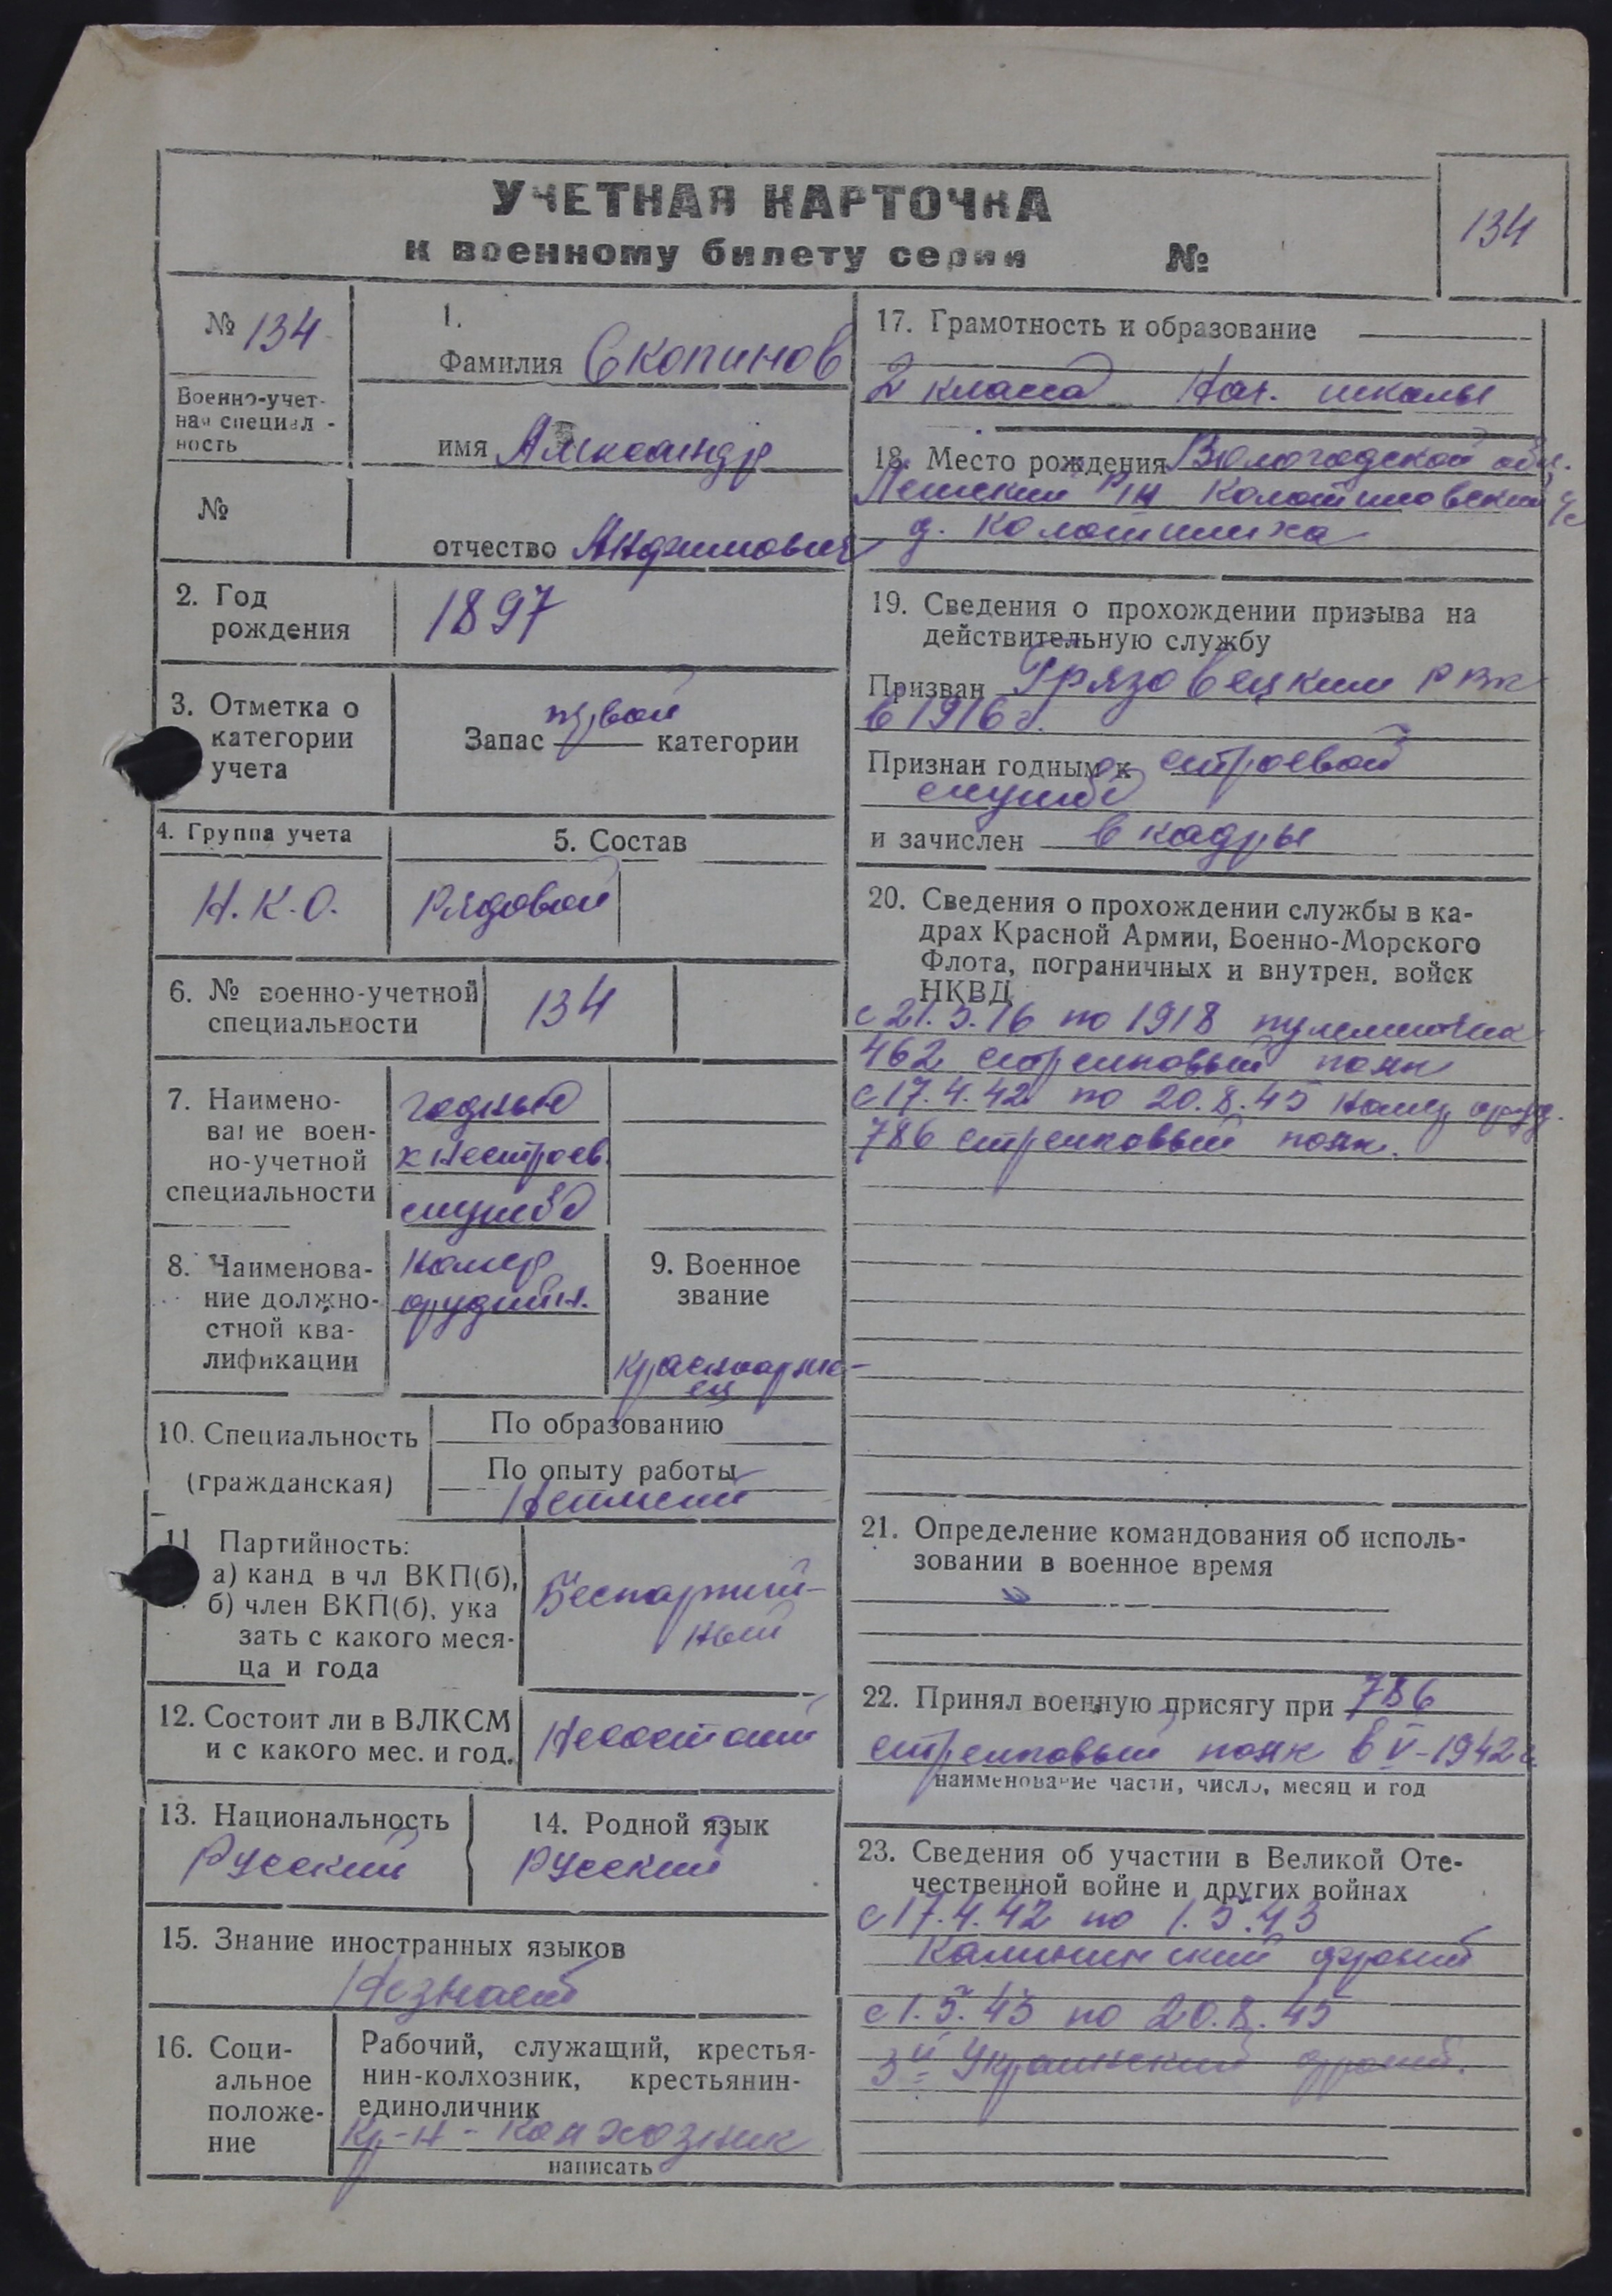 УЧЕТНАЯ КАРТОЧКА
к военному билету серии №
134
№ 134
Военно-учет-
ная специал-
ность
№
1.
Фамилия Скопинов
имя Александр
отчество Анфимович
2. Год
рождения
1897
3. Отметка о
категории
учета
первой
Запас категории
4. Группа учета
Н.К.О.
5. Состав
Рядовой
6. № военно-учетной
специальности
134
7. Наимено-
вание воен-
но-учетной
специальности
годный
к нестроев.
службе
8. Наименова-
ние должно-
стной ква-
лификации
Номер
орудийн.
9. Военное
звание
красноарме-
ец
10. Специальность
(гражданская)
По образованию
По опыту работы
Неимеет
11 Партийность:
а) канд в чл ВКП(б),
б) член ВКП(б), ука
зать с какого меся-
ца и года
Беспартий-
ный
12. Состоит ли в ВЛКСМ
и с какого мес. и год.
Несостоит
13. Национальность
Русский
14. Родной язык
Русский
15. Знание иностранных языков
Незнает
16. Соци-
альное
положе-
ние
Рабочий, служащий, крестья-
нин-колхозник, крестьянин-
единоличник
Кр-н-колхозник
написать
17. Грамотность и образование
2 класса Нач. школы
18. Место рождения Вологодской обл.
р/н с/с
д.
19. Сведения о прохождении призыва на
действительную службу
Призван Грязовецким РВК
в 1916 г.
Признан годным к строевой
службе
и зачислен в кадры
20. Сведения о прохождении службы в ка-
драх Красной Армии, Военно-Морского
Флота, пограничных и внутрен. войск
НКВД
с 21.5.16 по 1918 пулеметчик
462 стрелковый полк
с 17.4.42 по 20.8.45 номер оруд.
786 стрелковый полк.
21. Определение командования об исполь-
зовании в военное время
22. Принял военную присягу при 786
стрелковый полк в V-1942 г.
наименование части, число, месяц и год
23. Сведения об участии в Великой Оте-
чественной войне и других войнах
с 17.4.42 по 1.5.43
Калининский фронт
с 1.5.43 по 20.8.45
3й Украинский фронт.